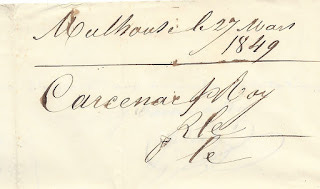 Mulhouse le 27 Mars
1849
Carcenac & Roy